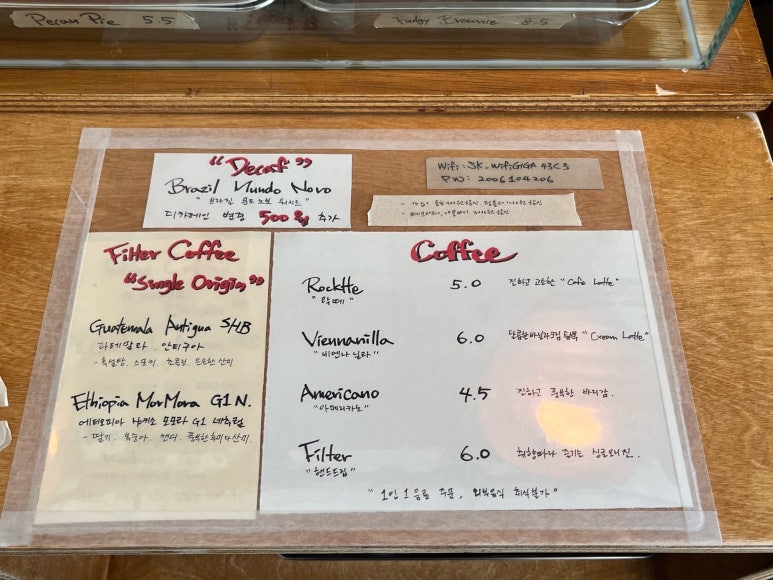 Pecan Pie 5.5
Fudgy Brownie 8.5
"Decaf"
Brazil Mundo Novo
- 브라질 문도노보 워시드 -
디카페인 변경 500원 추가
Wifi : SK_WifiGIGA43C3
PW : 2006104206
Filter Coffee
"Single Origin"
Guatemala Antigua SHB
과테말라 . 안티구아
- 흑설탕 . 스모키 . 초콜릿 . 은은한 산미
Ethiopia MorMora G1 N.
에티오피아 모모라 G1 네추럴
- 딸기 . 복숭아 . 캔디 . 풍부한 산미.
Coffee
Rocktte 5.0 진하고 고소한 "Cafe Latte"
"락떼"
Viennanilla 6.0 달콤한 바닐라크림 듬뿍 "Cream Latte"
"비엔나 닐라"
Americano 4.5 진하고 풍부한 바디감.
"아메리카노"
Filter 6.0 취향따라 즐기는 싱글오리진.
"핸드드립"
" 1인 1음료 주문 , 외부음식 취식불가 "